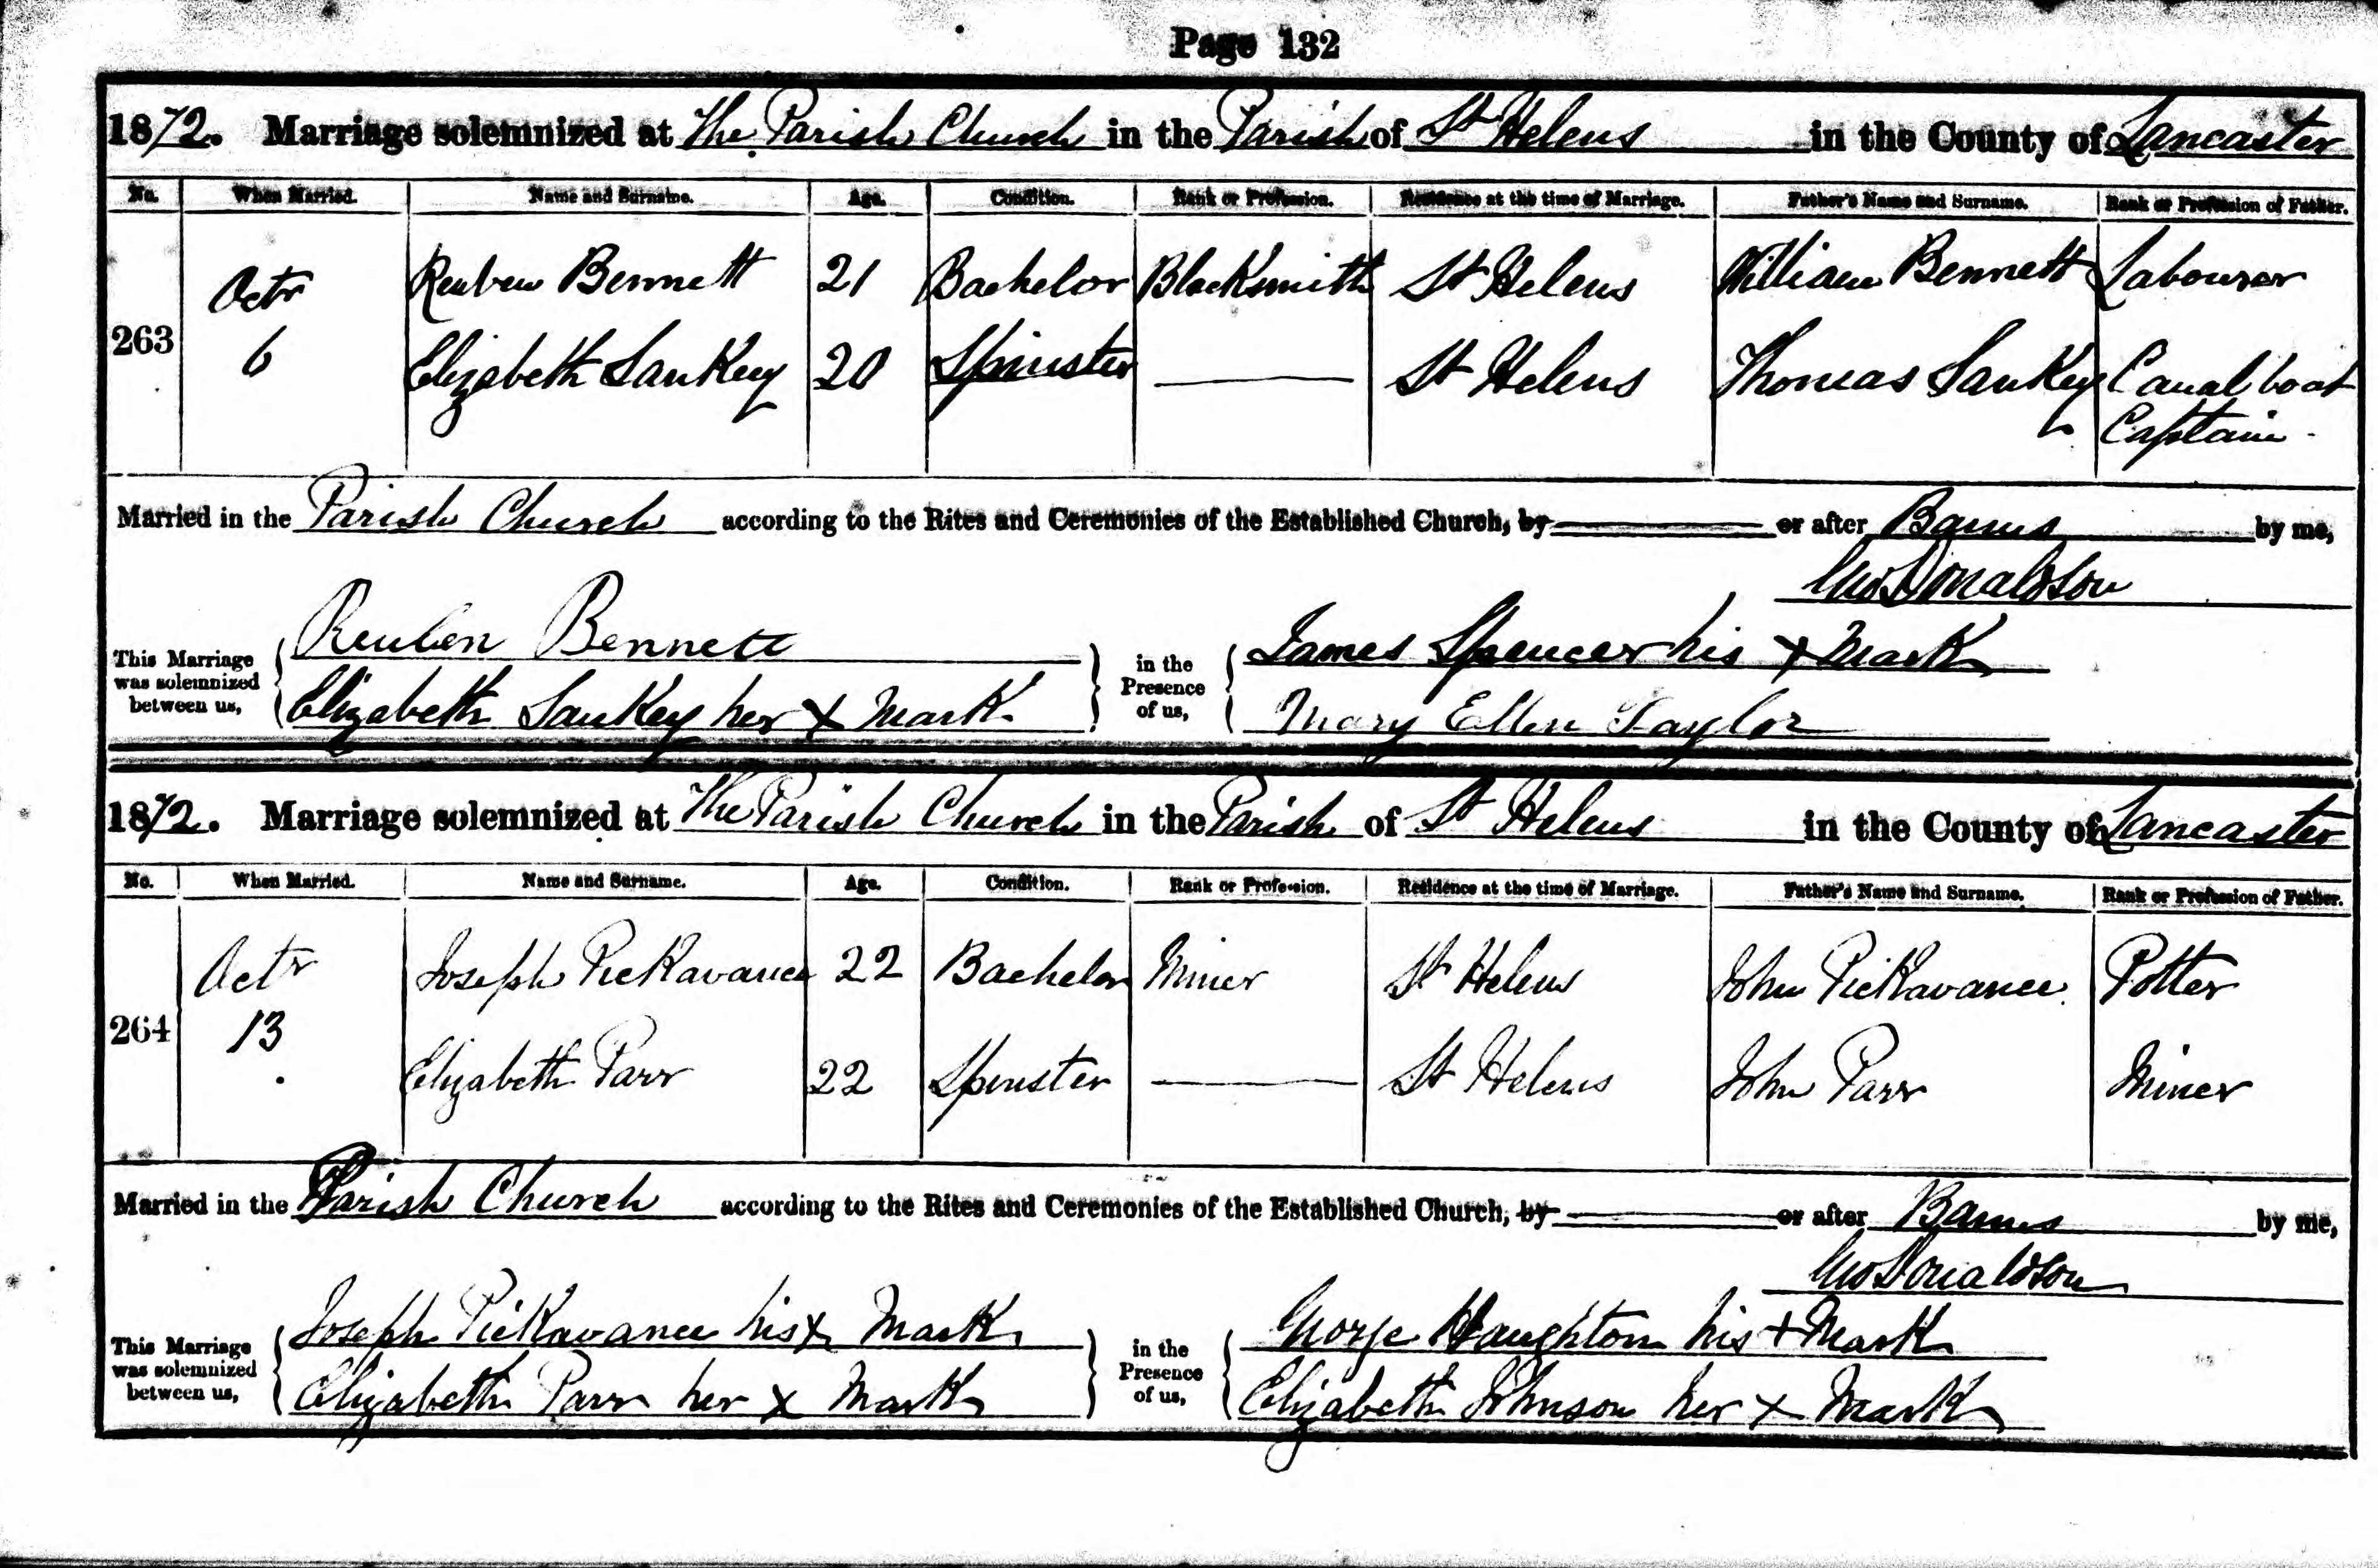 Page 132
1872. Marriage solemnized at The Parish Church in the Parish of St Helens in the County of Lancaster
No. When Married. Name and Surname. Age. Condition. Rank or Profession. Residence at the time of Marriage. Father's Name and Surname. Rank or Profession of Father.
Octr Reuben Bennett 21 Bachelor Blacksmith St Helens William Bennett Labourer
263 6 Elizabeth Sankey 20 Spinster St Helens Thomas Sankey Canal boat
Captain
Married in the Parish Church according to the Rites and Ceremonies of the Established Church, by or after Banns by me,
Donaldson
This Marriage was solemnized between us, Reuben Bennett in the Presence of us, James Spencer his x Mark
Elizabeth Sankey her x Mark Mary Ellen Taylor
1872. Marriage solemnized at The Parish Church in the Parish of St Helens in the County of Lancaster
No. When Married. Name and Surname. Age. Condition. Rank or Profession. Residence at the time of Marriage. Father's Name and Surname. Rank or Profession of Father.
Octr Joseph Pickavance 22 Bachelor Miner St Helens John Pickavance Potter
264 13 Elizabeth Parr 22 Spinster St Helens John Parr Miner
Married in the Parish Church according to the Rites and Ceremonies of the Established Church, by or after Banns by me,
Donaldson
This Marriage was solemnized between us, Joseph Pickavance his x Mark in the Presence of us, George Haughton his + Mark
Elizabeth Parr her x Mark Elizabeth Johnson her x Mark